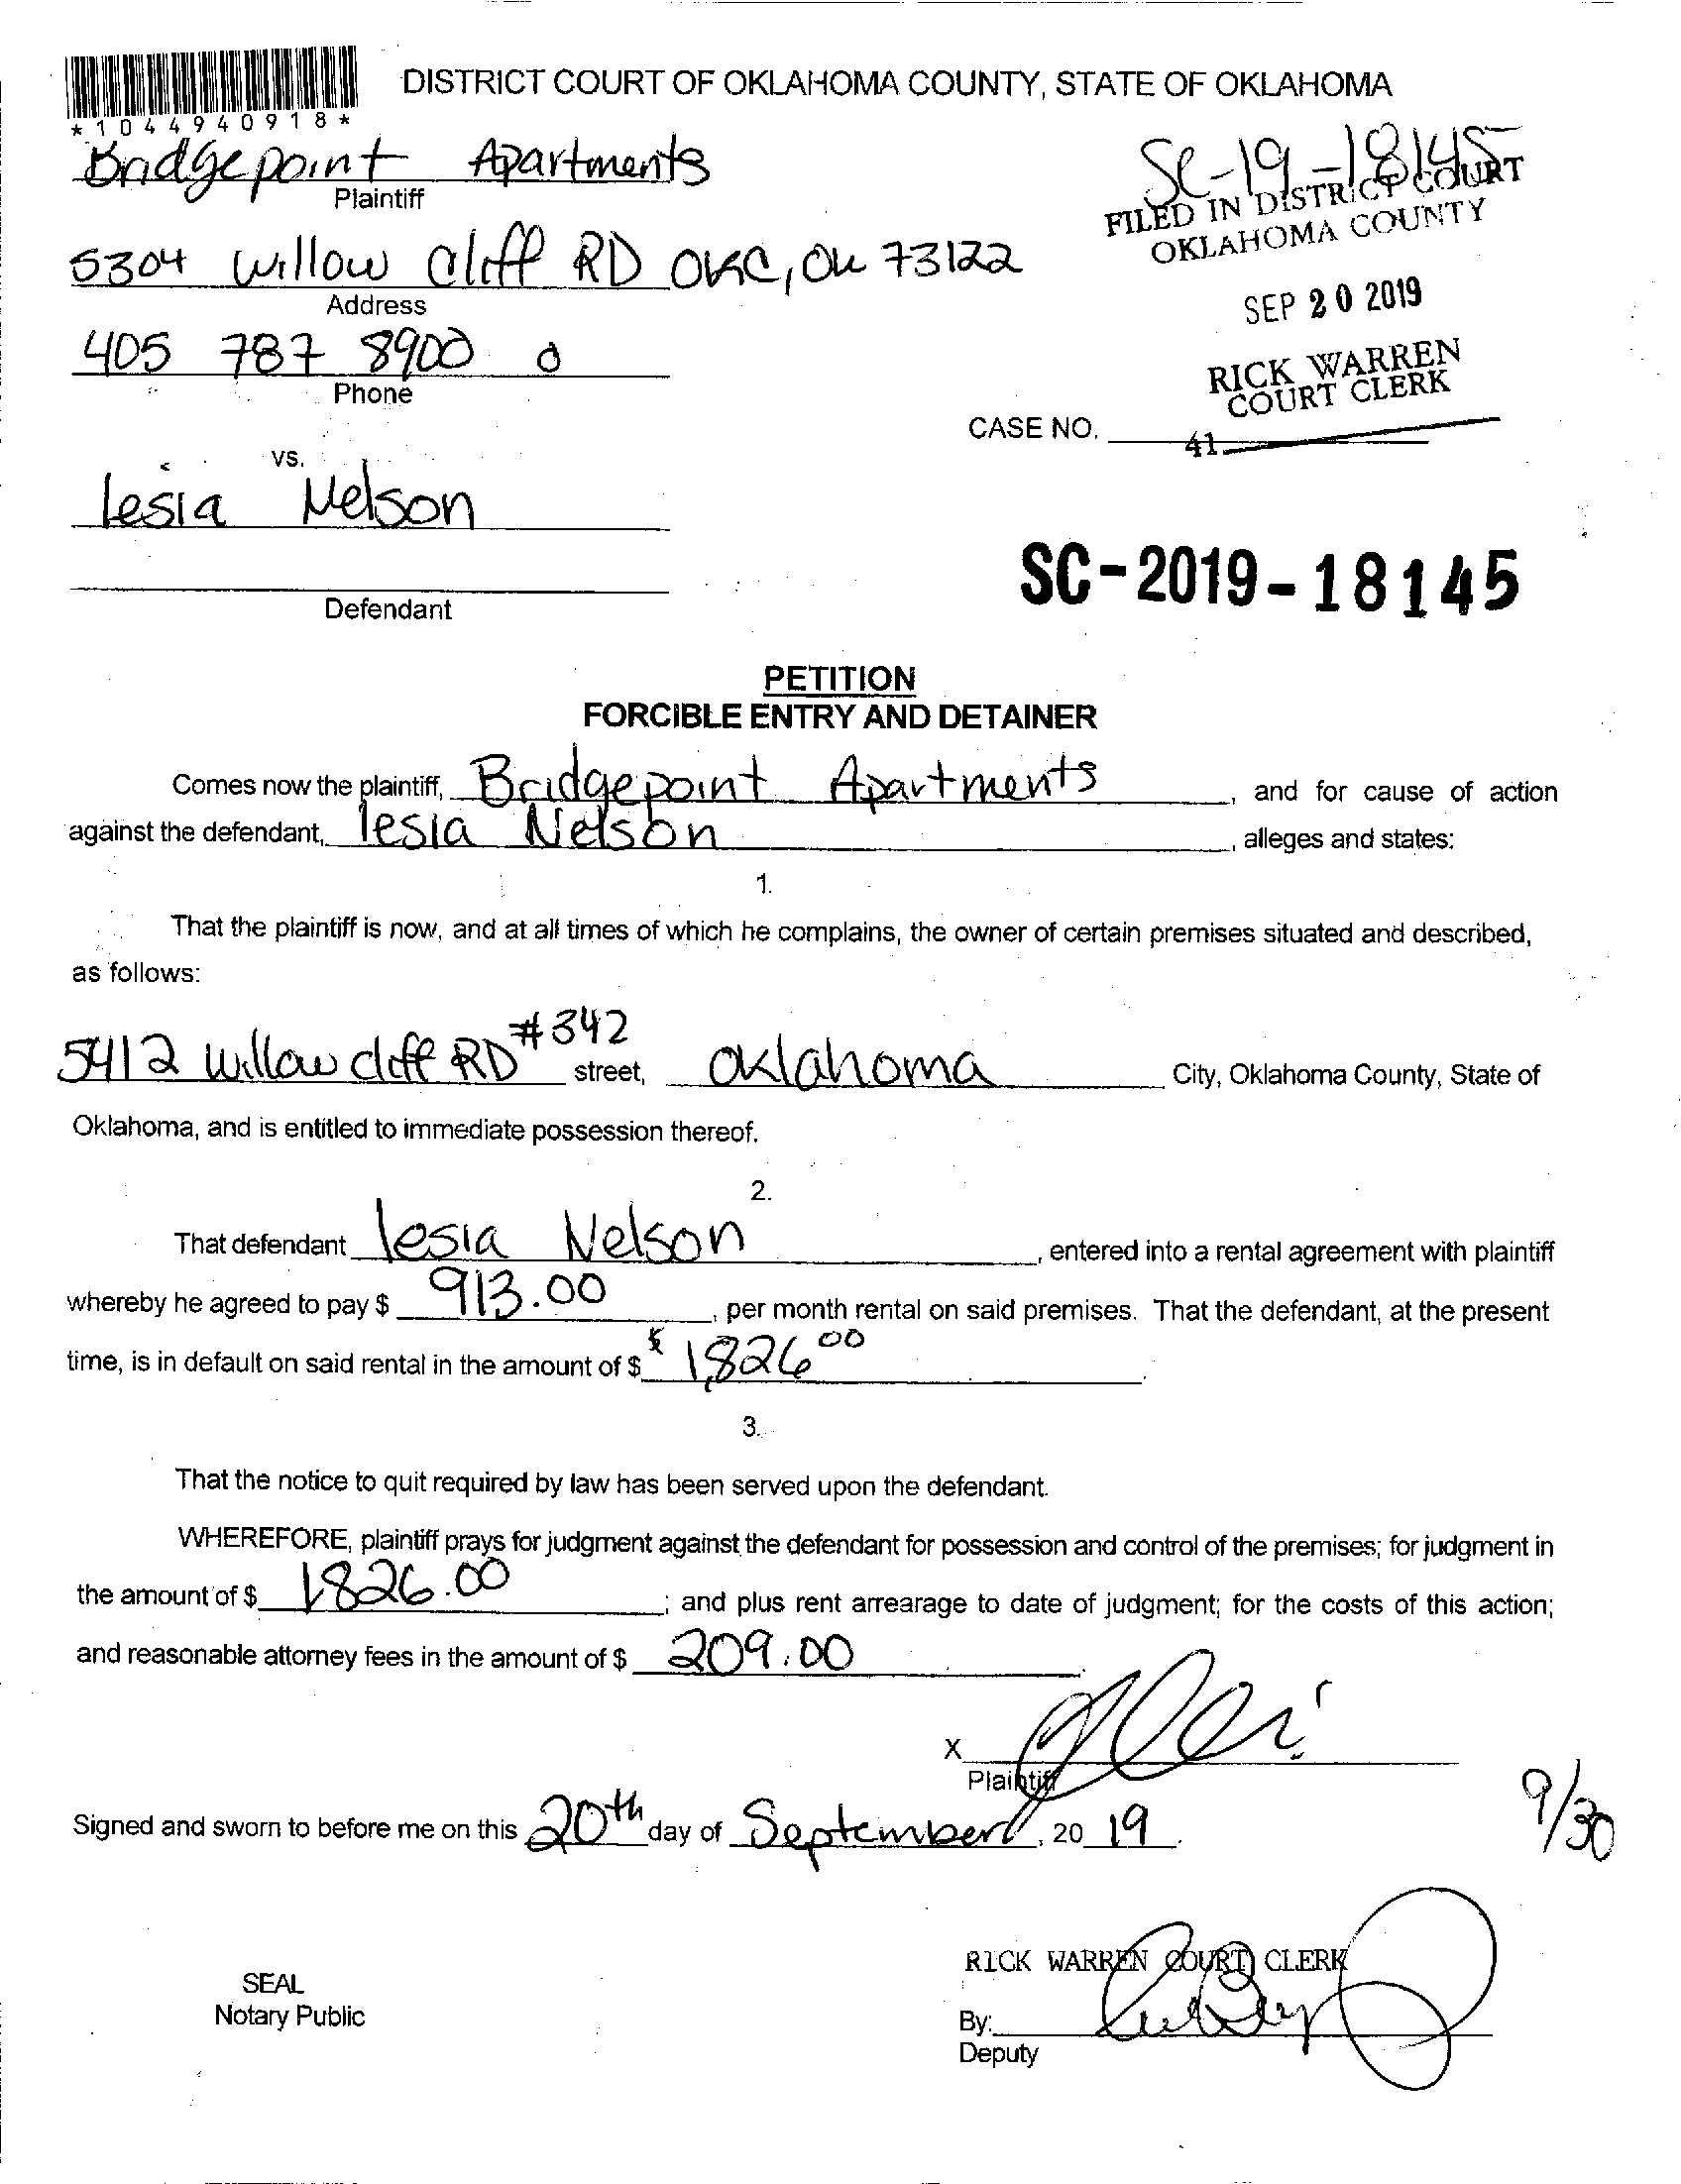 DISTRICT COURT OF OKLAHOMA COUNTY, STATE OF OKLAHOMA
*1044940918*
Bridgepoint Apartments
Plaintiff
SC-19-18145
FILED IN DISTRICT COURT
OKLAHOMA COUNTY
5304 Willow Cliff RD OKC, OK 73122
Address
SEP 20 2019
405 787 8900 0
Phone
RICK WARREN
COURT CLERK
CASE NO.
41
vs.
lesia Nelson
Defendant
SC-2019-18145
PETITION
FORCIBLE ENTRY AND DETAINER
Comes now the plaintiff, Bridgepoint Apartments, and for cause of action
against the defendant, lesia Nelson, alleges and states:
1.
That the plaintiff is now, and at all times of which he complains, the owner of certain premises situated and described,
as follows:
5412 Willow cliff RD #342 street, Oklahoma City, Oklahoma County, State of
Oklahoma, and is entitled to immediate possession thereof.
2.
That defendant lesia Nelson, entered into a rental agreement with plaintiff
whereby he agreed to pay $ 913.00, per month rental on said premises. That the defendant, at the present
time, is in default on said rental in the amount of $ $ 1,826 00.
3.
That the notice to quit required by law has been served upon the defendant.
WHEREFORE, plaintiff prays for judgment against the defendant for possession and control of the premises; for judgment in
the amount of $ 1,826.00; and plus rent arrearage to date of judgment; for the costs of this action;
and reasonable attorney fees in the amount of $ 209.00
X
Plaintiff
Signed and sworn to before me on this 20th day of September, 20 19.
9/30
RICK WARREN COURT CLERK
SEAL
Notary Public
By:
Deputy